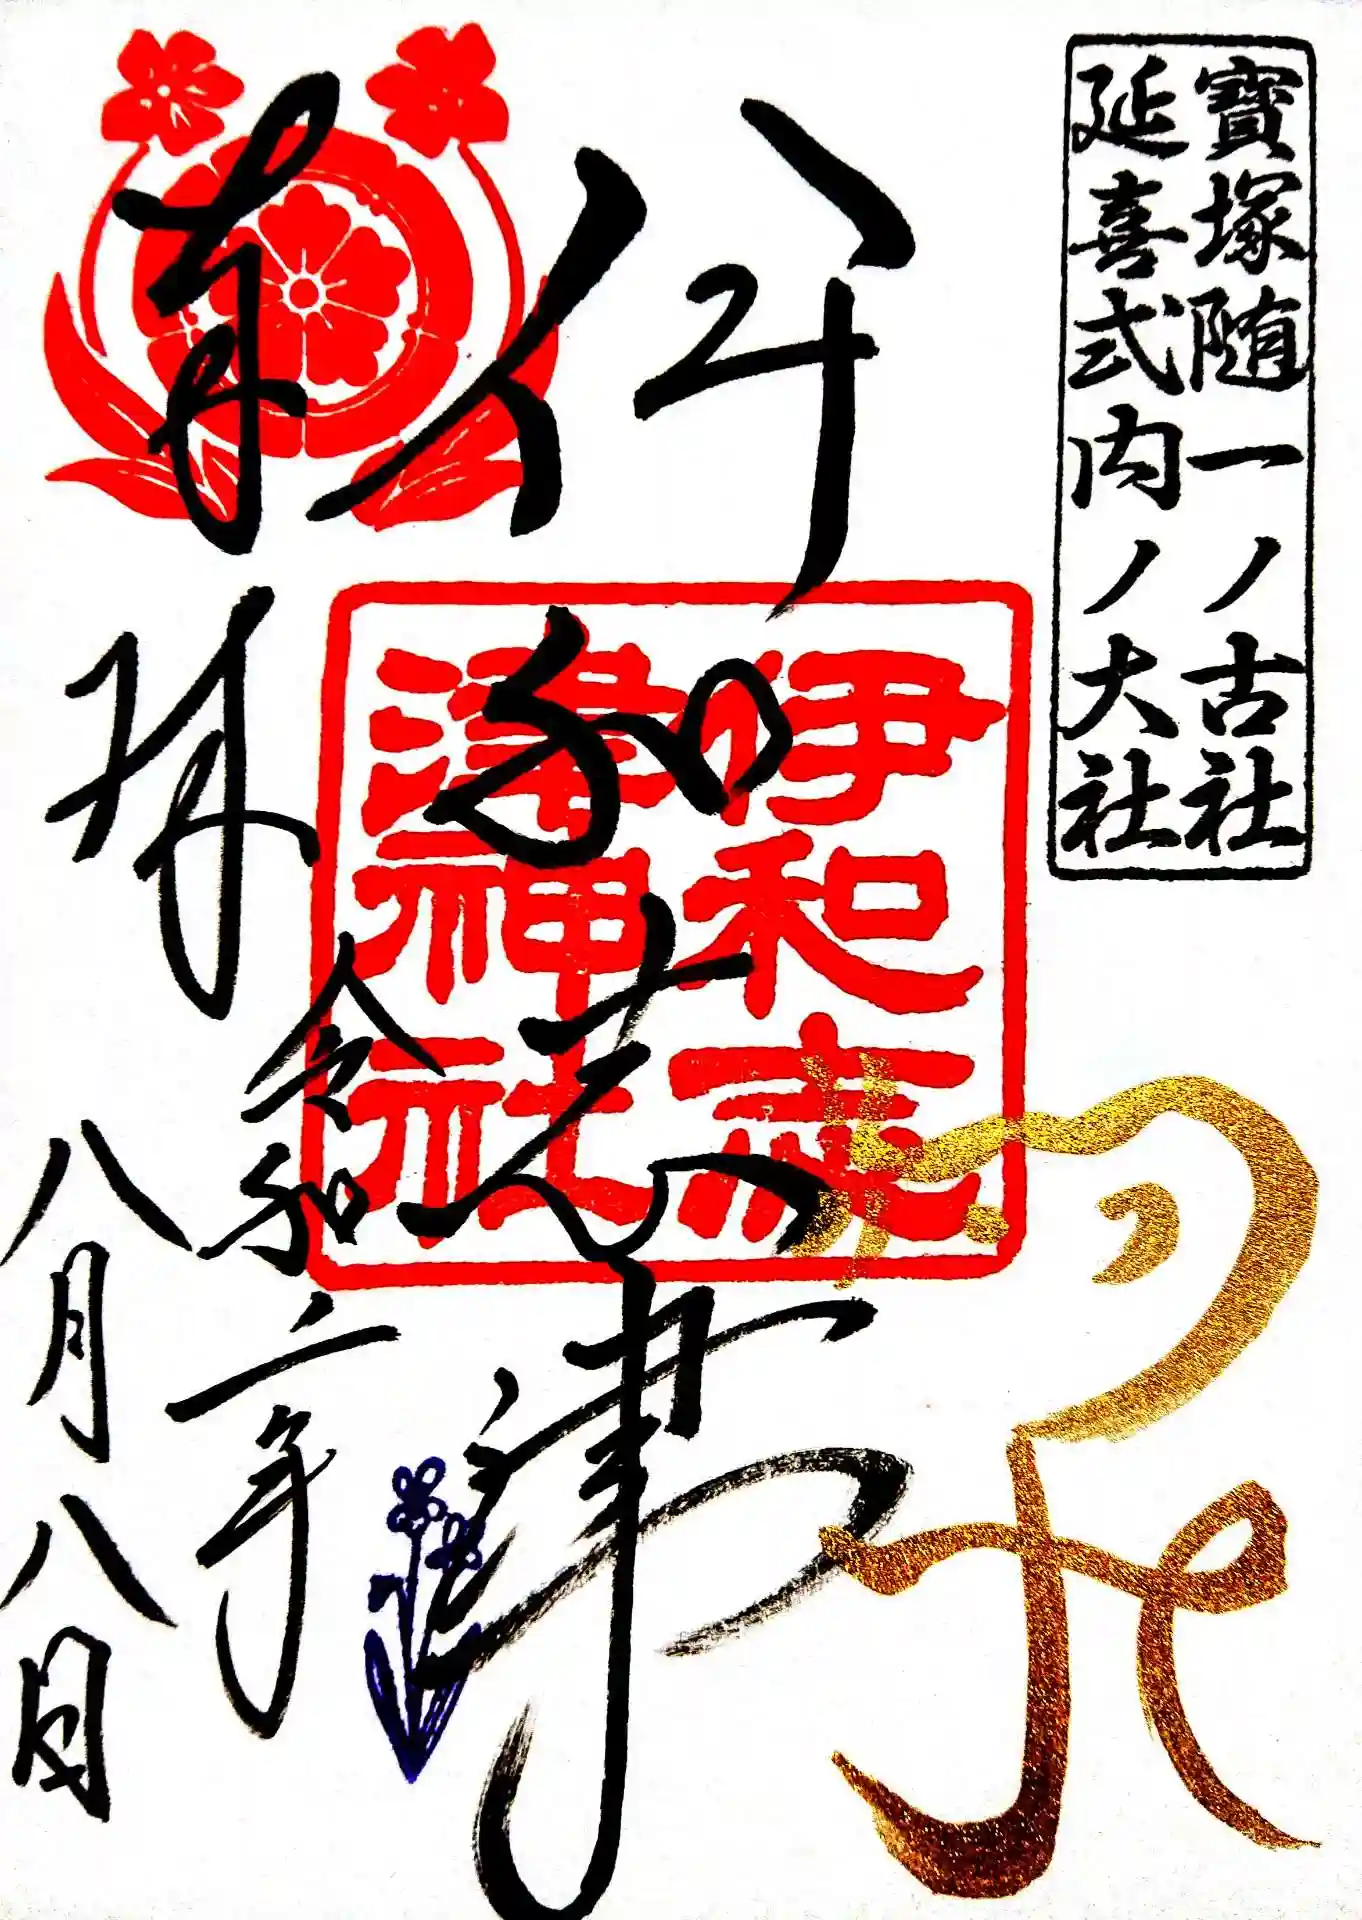 寶塚随一ノ古社
延喜式内ノ大社
伊和志津
伊和志
津神社
奉拝
令和二年
八月八日